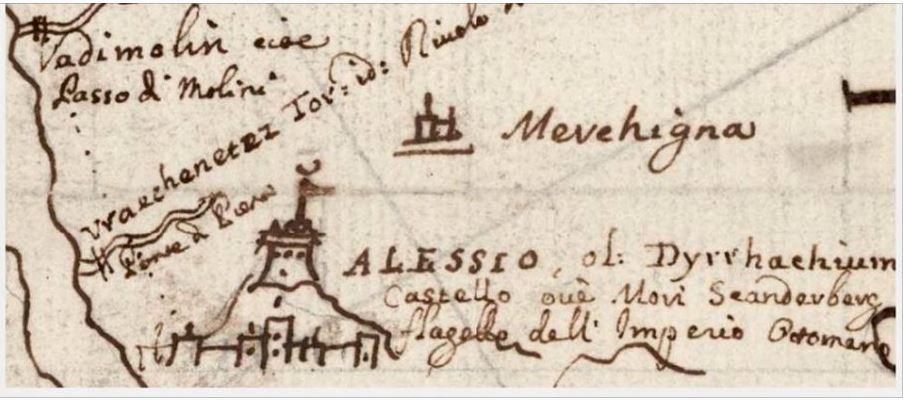 Vadimolin cioe
Passo di Molini
Vraechenetez Tor: id: Rivolo
Ponte di Piera
Mevehigna
ALESSIO, ol: Dyrrhachium
Castello ouè Mori Scanderberg
flagello dell' Imperio Ottomano